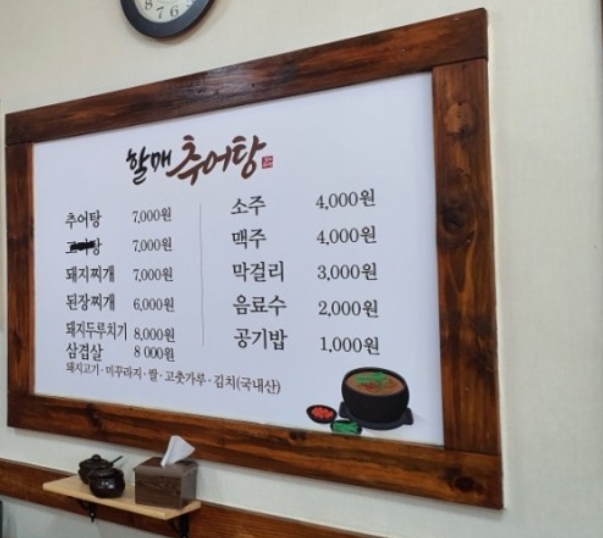 8 7 6 5
할매 추어탕
추어탕 7,000원
탕 7,000원
돼지찌개 7,000원
된장찌개 6,000원
돼지두루치기 8,000원
삼겹살 8 000원
돼지고기·미꾸라지·쌀·고춧가루·김치(국내산)
소주 4,000원
맥주 4,000원
막걸리 3,000원
음료수 2,000원
공기밥 1,000원